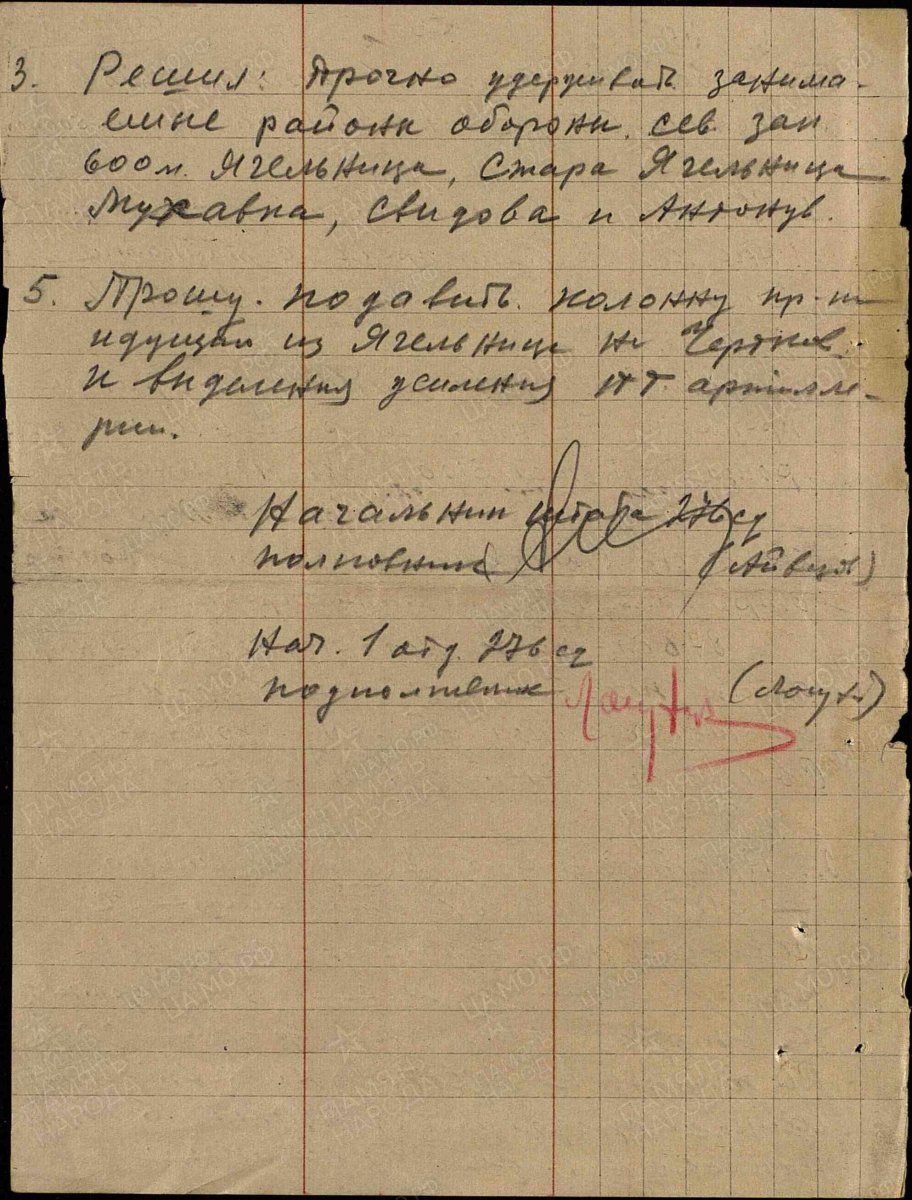 3. Решил: Прочно удерживать занима-
емые районы обороны сев. зап
600 м. Ягельница, Стара Ягельница
Мухавка, Свидова и Антонув.
5. Прошу. подавить колонну пр-ка
идущую из Ягельница на Чертков
и выделения усиления ПТ артилле-
рии.
Начальник штаба 276 сд
полковник (Айвазов)
Нач. 1 отд. 276 сд
подполковник (Логутин)